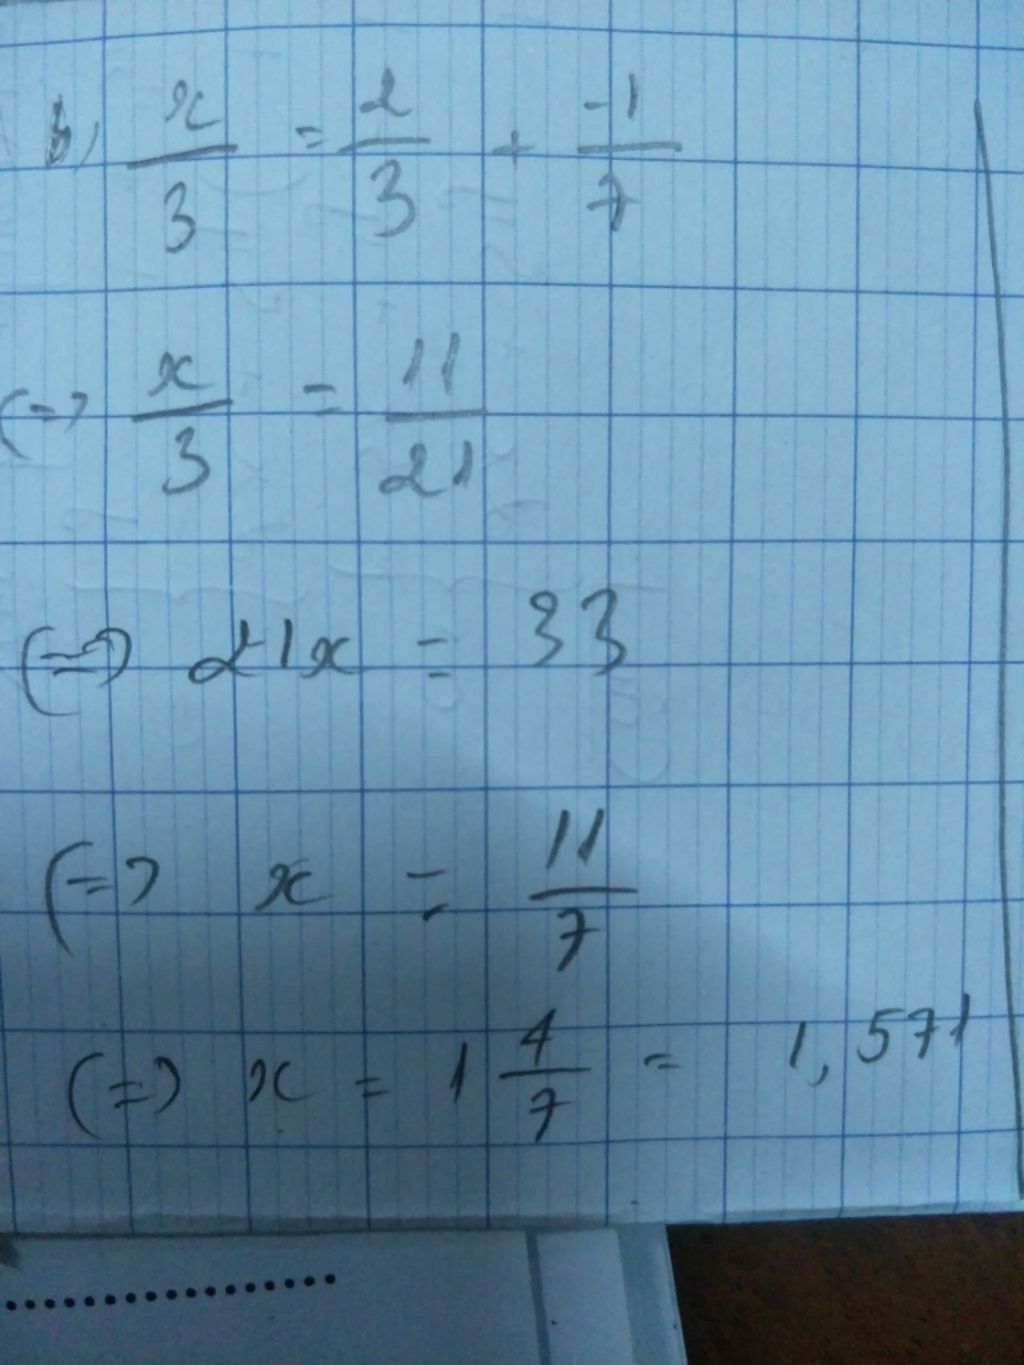 b, x/3 = 2/3 + -1/7
(=> x/3 = 11/21
(=> 21x = 33
(=> x = 11/7
(=> x = 1 4/7 = 1,571